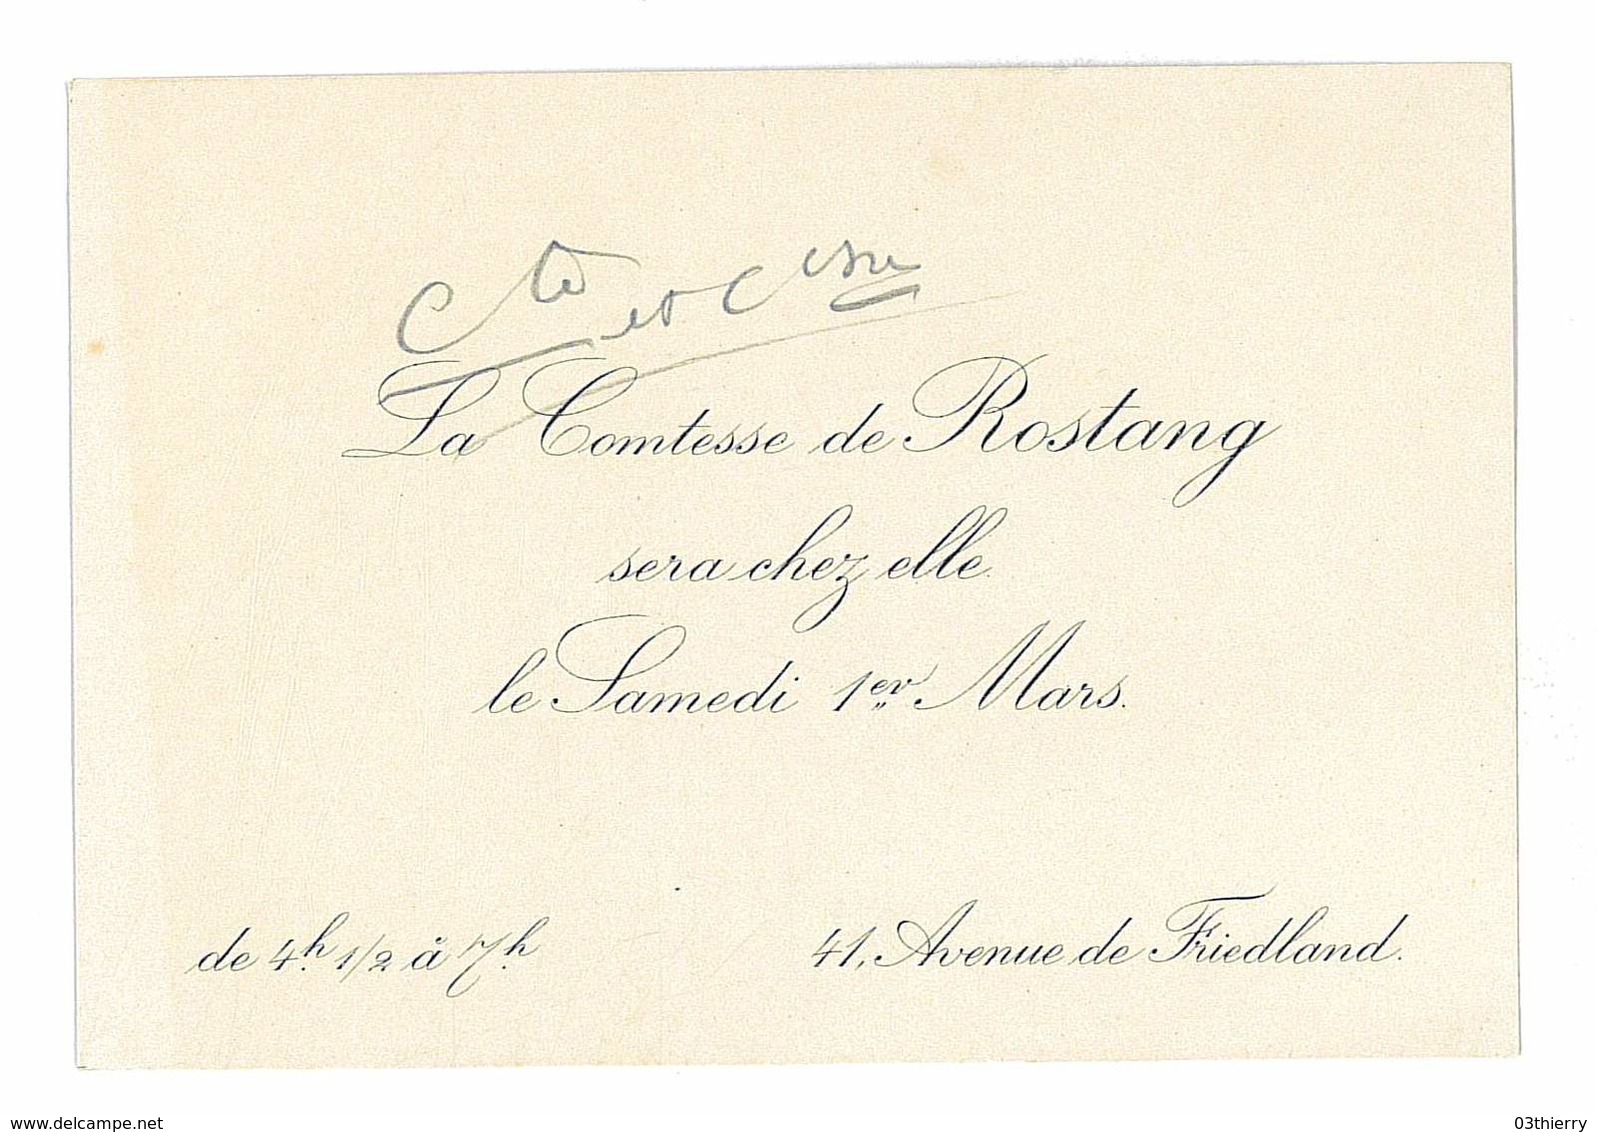 Cte et Csse
La Comtesse de Rostang
sera chez elle
le Samedi 1er Mars.
de 4h. 1/2 à 7h. 41, Avenue de Friedland.
www.delcampe.net 03thierry